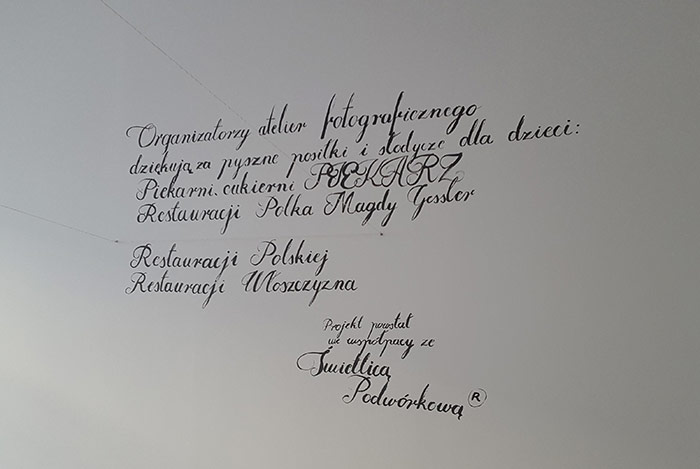 Organizatorzy atelier fotograficznego
dziękują za pyszne posiłki i słodycze dla dzieci:
Piekarni. cukierni PIEKARZ
Restauracji Polka Magdy Gessler
Restauracji Polskiej
Restauracji Włoszczyzna
Projekt powstał
we współpracy ze
Świetlicą
Podwórkową ®